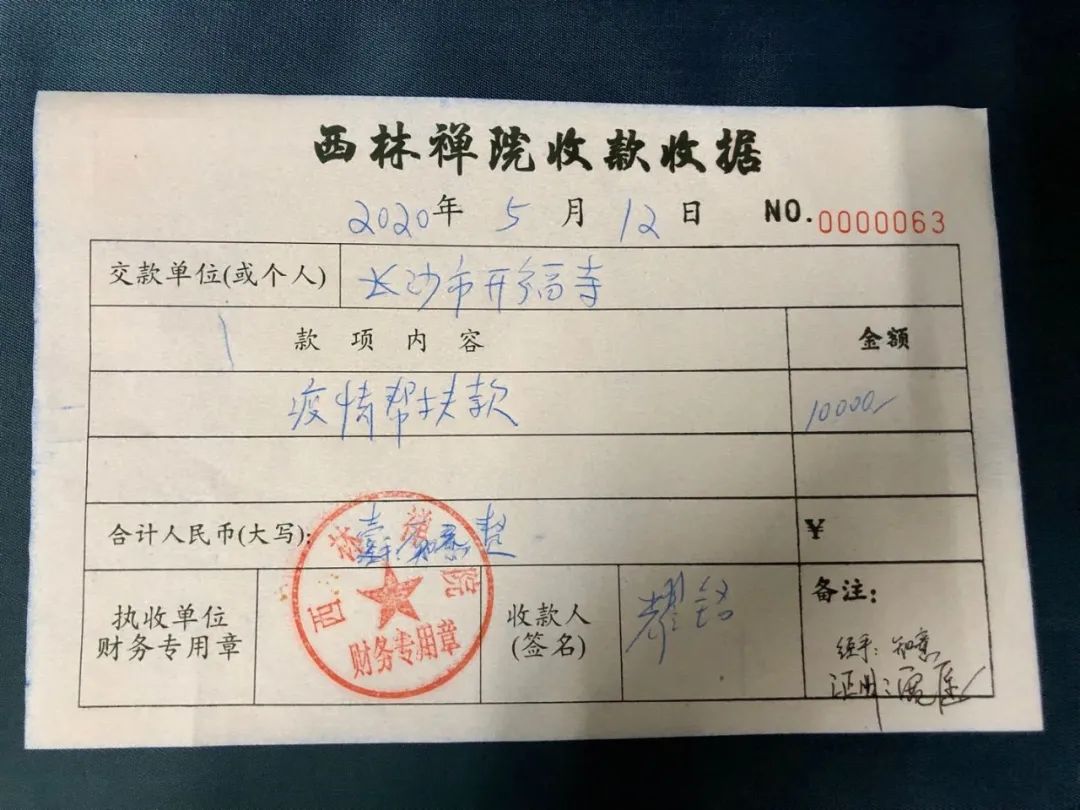 西林禅院收款收据
2020年 5 月 12 日 NO.0000063
交款单位(或个人) 长沙市开福寺
款项内容 金额
疫情帮扶款 10000
合计人民币(大写): 壹 整 ¥
执收单位
财务专用章
西林禅院
财务专用章
收款人
(签名)
备注:
经手: 知意
证明: